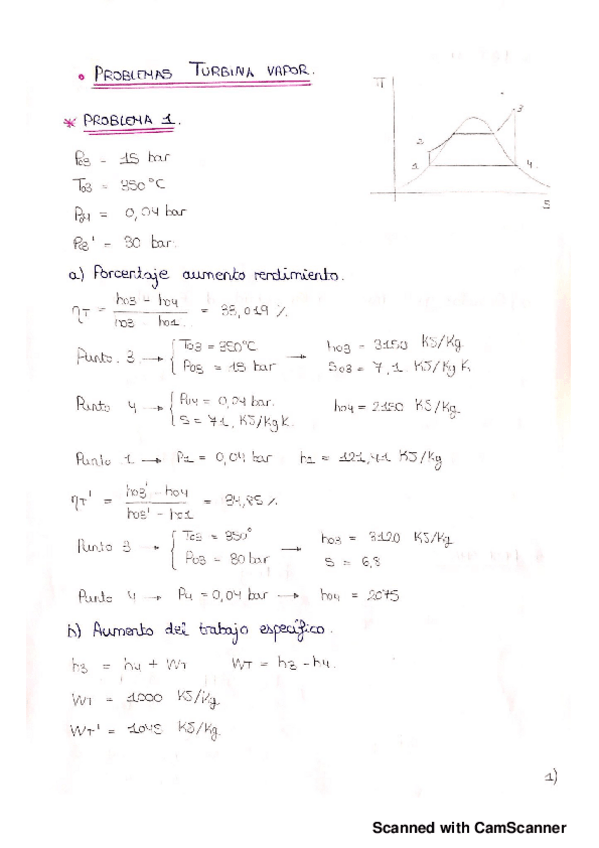 • PROBLEMAS TURBINA VAPOR.
* PROBLEMA 1.
T
3
2
1
4
S
P03 = 15 bar
T03 = 350°C
P04 = 0,04 bar
P03' = 30 bar.
a) Porcentaje aumento rendimiento.
ηT = (h03 - h04) / (h03 - h01) = 33,019 %
Punto 3 → { T03 = 350°C → h03 = 3150 KJ/Kg
P03 = 15 bar S03 = 7,1 KJ/Kg K
Punto 4 → { P04 = 0,04 bar. h04 = 2150 KJ/Kg
S = 7,1, KJ/Kg K.
Punto 1 → P1 = 0,04 bar h1 = 121,41 KJ/Kg
ηT' = (h03' - h04) / (h03' - h01) = 34,85 %
Punto 3 → { T03 = 350° → h03 = 3120 KJ/Kg
P03 = 30 bar S = 6,8
Punto 4 → P4 = 0,04 bar → h04 = 2075
b) Aumento del trabajo específico.
h3 = h4 + WT WT = h3 - h4.
WT = 1000 KJ/Kg
WT' = 1045 KJ/Kg
1)
Scanned with CamScanner